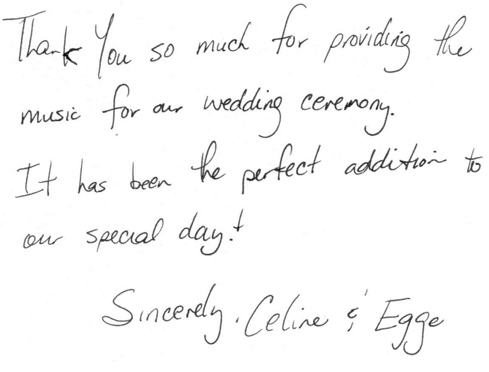 Thank You so much for providing the
music for our wedding ceremony.
It has been the perfect addition to
our special day!
Sincerely, Celine & Egge